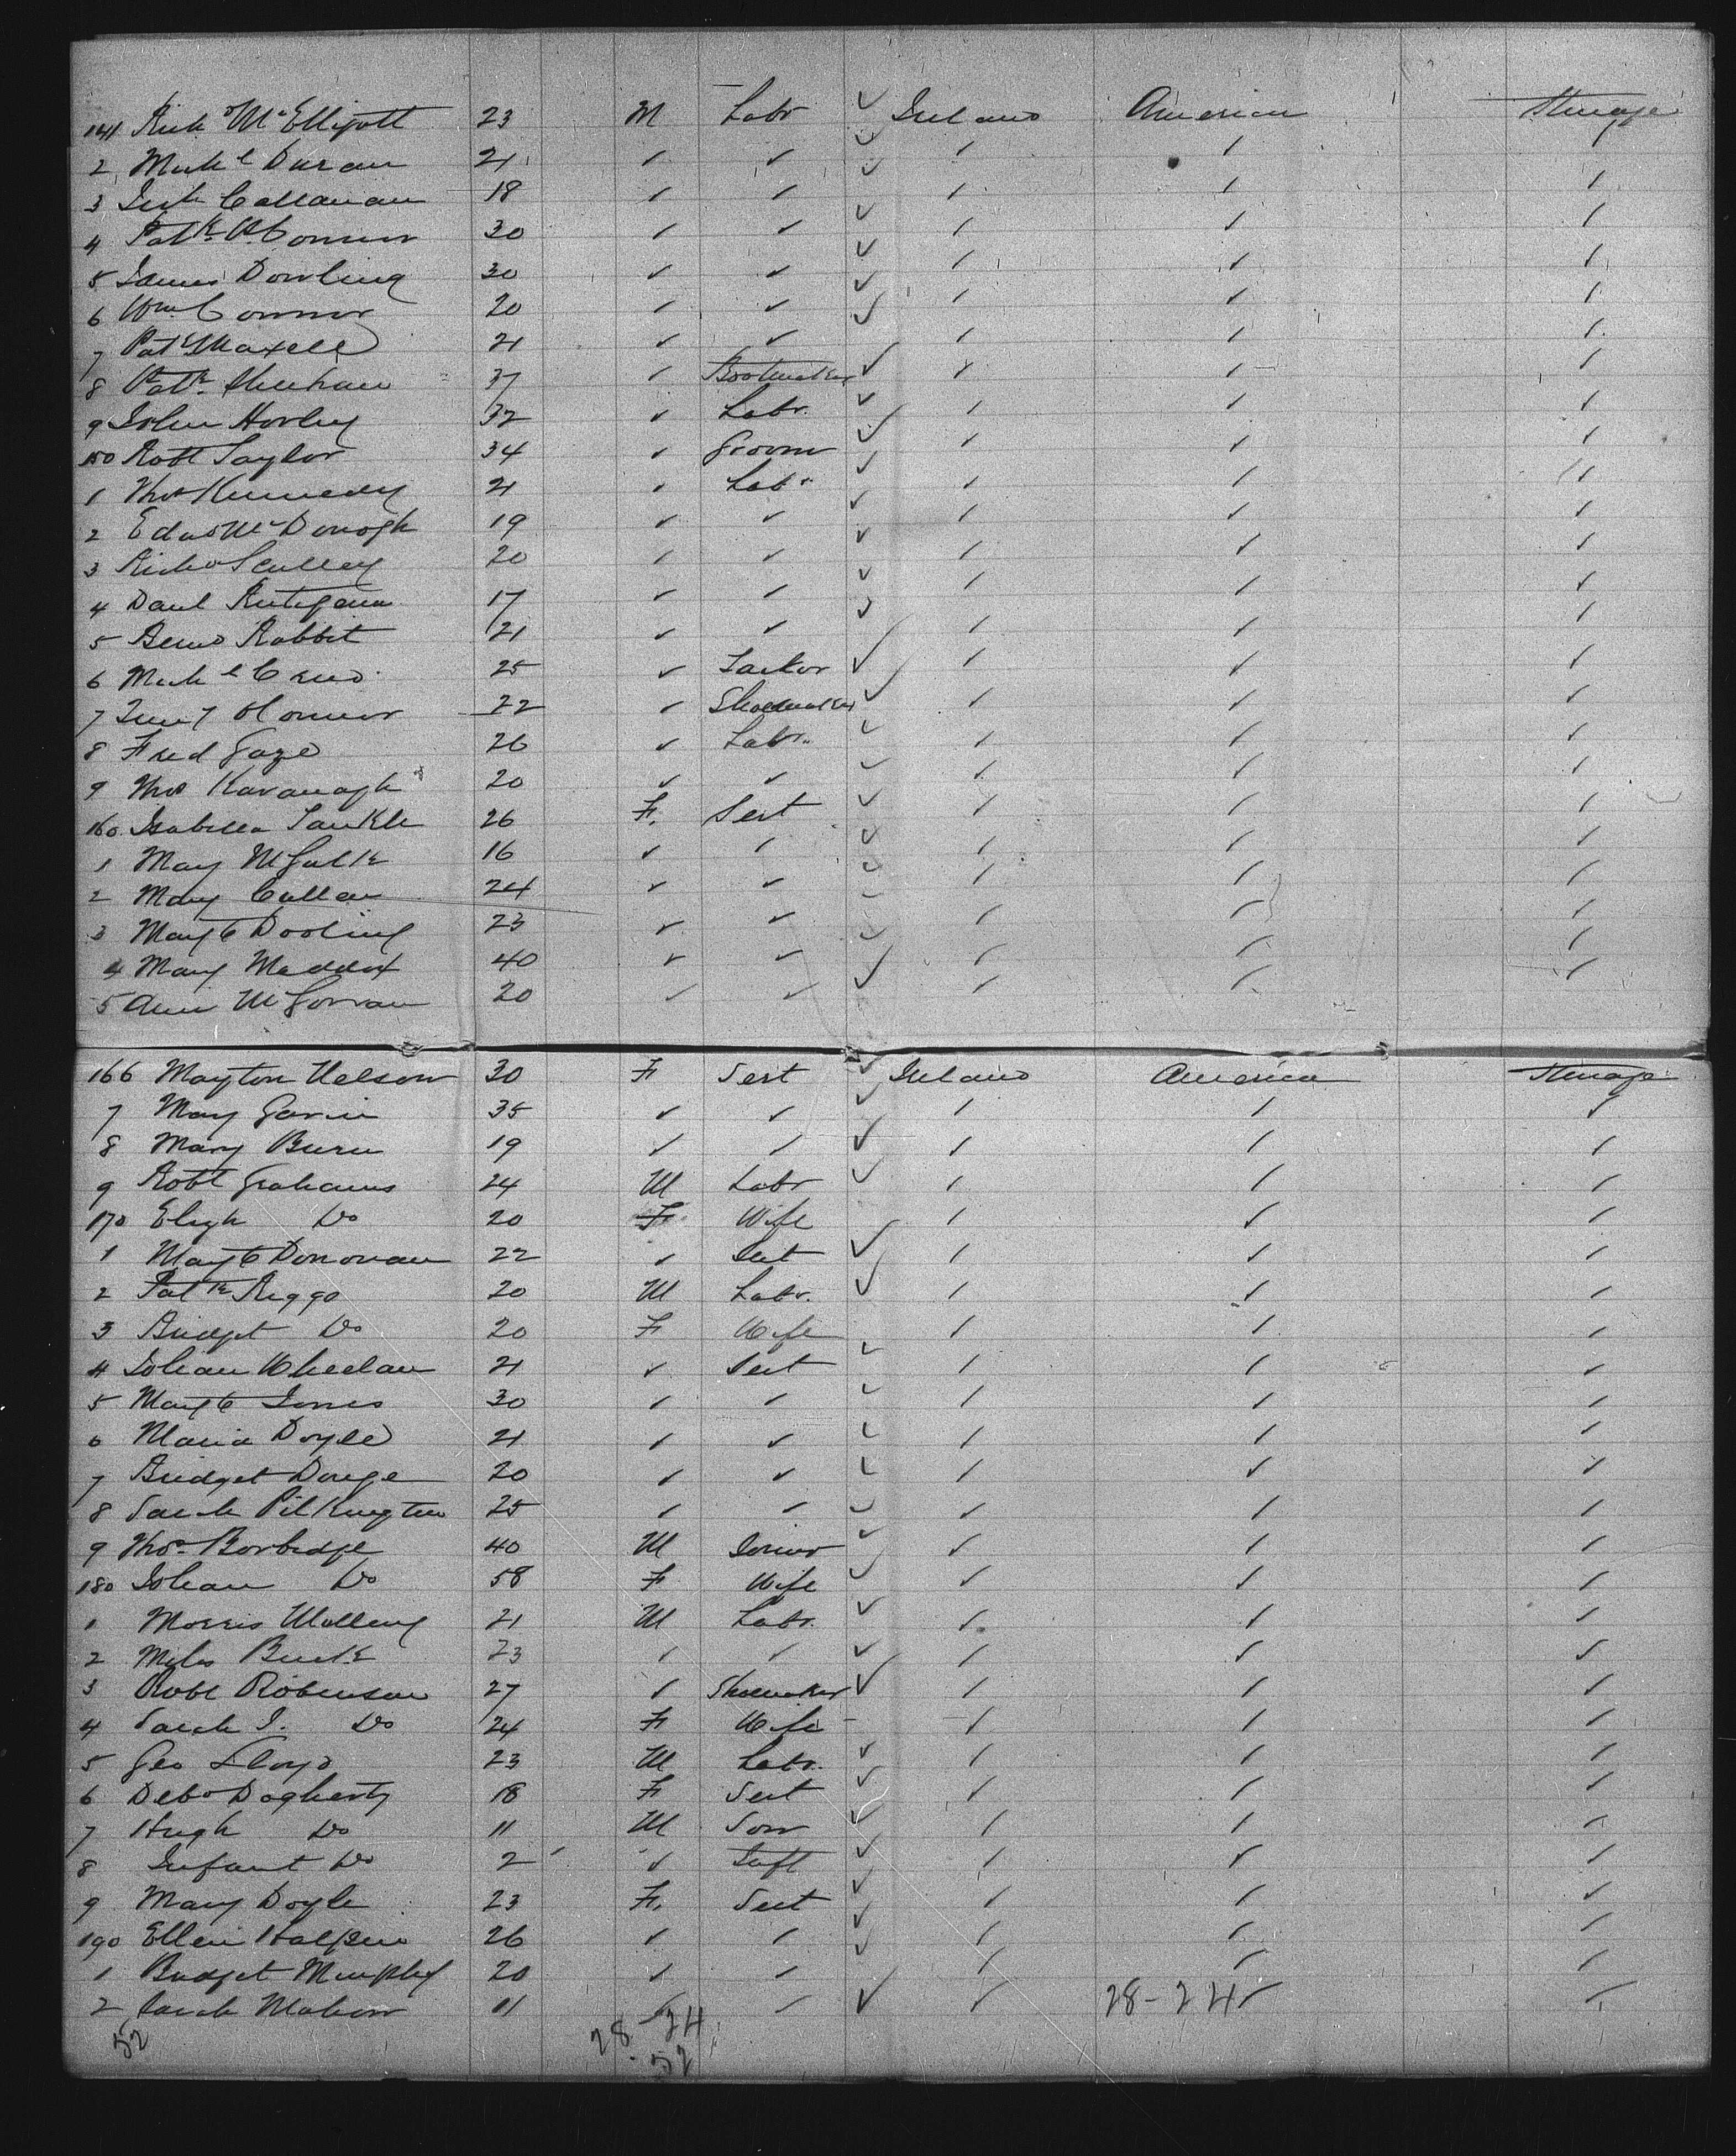 141 Richd McElligott 23 M Labr ✓ Ireland America Steerage
2 Michl Duran 21 ✓ ✓ ✓ ✓ ✓ ✓
3 Callanan 18 ✓ ✓ ✓ ✓ ✓ ✓
4 Patk O'Connor 30 ✓ ✓ ✓ ✓ ✓ ✓
5 James Dowling 30 ✓ ✓ ✓ ✓ ✓ ✓
6 Wm Connor 20 ✓ ✓ ✓ ✓ ✓ ✓
7 Patk Maxell 21 ✓ ✓ ✓ ✓ ✓ ✓
8 Patk Sheehan 37 ✓ Bootmaker ✓ ✓ ✓ ✓
9 John Horley 32 ✓ Labr. ✓ ✓ ✓ ✓
150 Robt Taylor 34 ✓ Groom ✓ ✓ ✓ ✓
1 Thos Kennedy 21 ✓ Labr ✓ ✓ ✓ ✓
2 Edwd McDonogh 19 ✓ ✓ ✓ ✓ ✓ ✓
3 Richd Sculley 20 ✓ ✓ ✓ ✓ ✓ ✓
4 Danl 17 ✓ ✓ ✓ ✓ ✓ ✓
5 Bernd Rabbit 21 ✓ ✓ ✓ ✓ ✓ ✓
6 Michl 25 ✓ Tailor ✓ ✓ ✓ ✓
7 Timy OConnor 22 ✓ Shoemaker ✓ ✓ ✓ ✓
8 Fred Gaze 26 ✓ Labr. ✓ ✓ ✓ ✓
9 Thos Kavanagh 20 ✓ ✓ ✓ ✓ ✓ ✓
160 Isabella 26 F. Sert ✓ ✓ ✓ ✓
1 Mary 16 ✓ ✓ ✓ ✓ ✓ ✓
2 Mary Cullen 24 ✓ ✓ ✓ ✓ ✓ ✓
3 Margt Dooling 23 ✓ ✓ ✓ ✓ ✓ ✓
4 Mary Maddox 40 ✓ ✓ ✓ ✓ ✓ ✓
5 Ann McGorran 20 ✓ ✓ ✓ ✓ ✓ ✓
166 Nelson 30 F Sert ✓ Ireland America Steerage
7 Mary Gavin 35 ✓ ✓ ✓ ✓ ✓ ✓
8 Mary Burn 19 ✓ ✓ ✓ ✓ ✓ ✓
9 Robt Grahams 24 M Labr ✓ ✓ ✓ ✓
170 Elizh Do 20 F Wife ✓ ✓ ✓
1 Margt Donovan 22 ✓ Sert ✓ ✓ ✓ ✓
2 Patk Riggs 20 M Labr. ✓ ✓ ✓ ✓
3 Bridget Do 20 F Wife ✓ ✓ ✓
4 Johan Wheelan 21 ✓ Sert ✓ ✓ ✓ ✓
5 Margt Jones 30 ✓ ✓ ✓ ✓ ✓ ✓
6 Maria Doyle 21 ✓ ✓ ✓ ✓ ✓ ✓
7 Bridget 20 ✓ ✓ ✓ ✓ ✓ ✓
8 Sarah Pilkington 25 ✓ ✓ ✓ ✓ ✓ ✓
9 Thos Borbidge 40 M Joiner ✓ ✓ ✓ ✓
180 Johan Do 58 F Wife ✓ ✓ ✓ ✓
1 Morris Molleny 21 M Labr. ✓ ✓ ✓ ✓
2 Miles Burke 23 ✓ ✓ ✓ ✓ ✓ ✓
3 Robt Robinson 27 ✓ Shoemaker ✓ ✓ ✓ ✓
4 Sarah J. Do 24 F Wife - ✓ ✓ ✓
5 Geo Lloyd 23 M Labr. ✓ ✓ ✓ ✓
6 Debo Dogherty 18 F Sert ✓ ✓ ✓ ✓
7 Hugh Do 11 M Son ✓ ✓ ✓ ✓
8 Infant Do 2 ✓ Inft ✓ ✓ ✓ ✓
9 Mary Doyle 23 F. Sert ✓ ✓ ✓ ✓
190 Ellen Halpen 26 ✓ ✓ ✓ ✓ ✓ ✓
1 Bridget Murphy 20 ✓ ✓ ✓ ✓ ✓ ✓
2 Sarah Mahon 11 ✓ ✓ ✓ ✓ 28-24 ✓ ✓
52 28-24
52